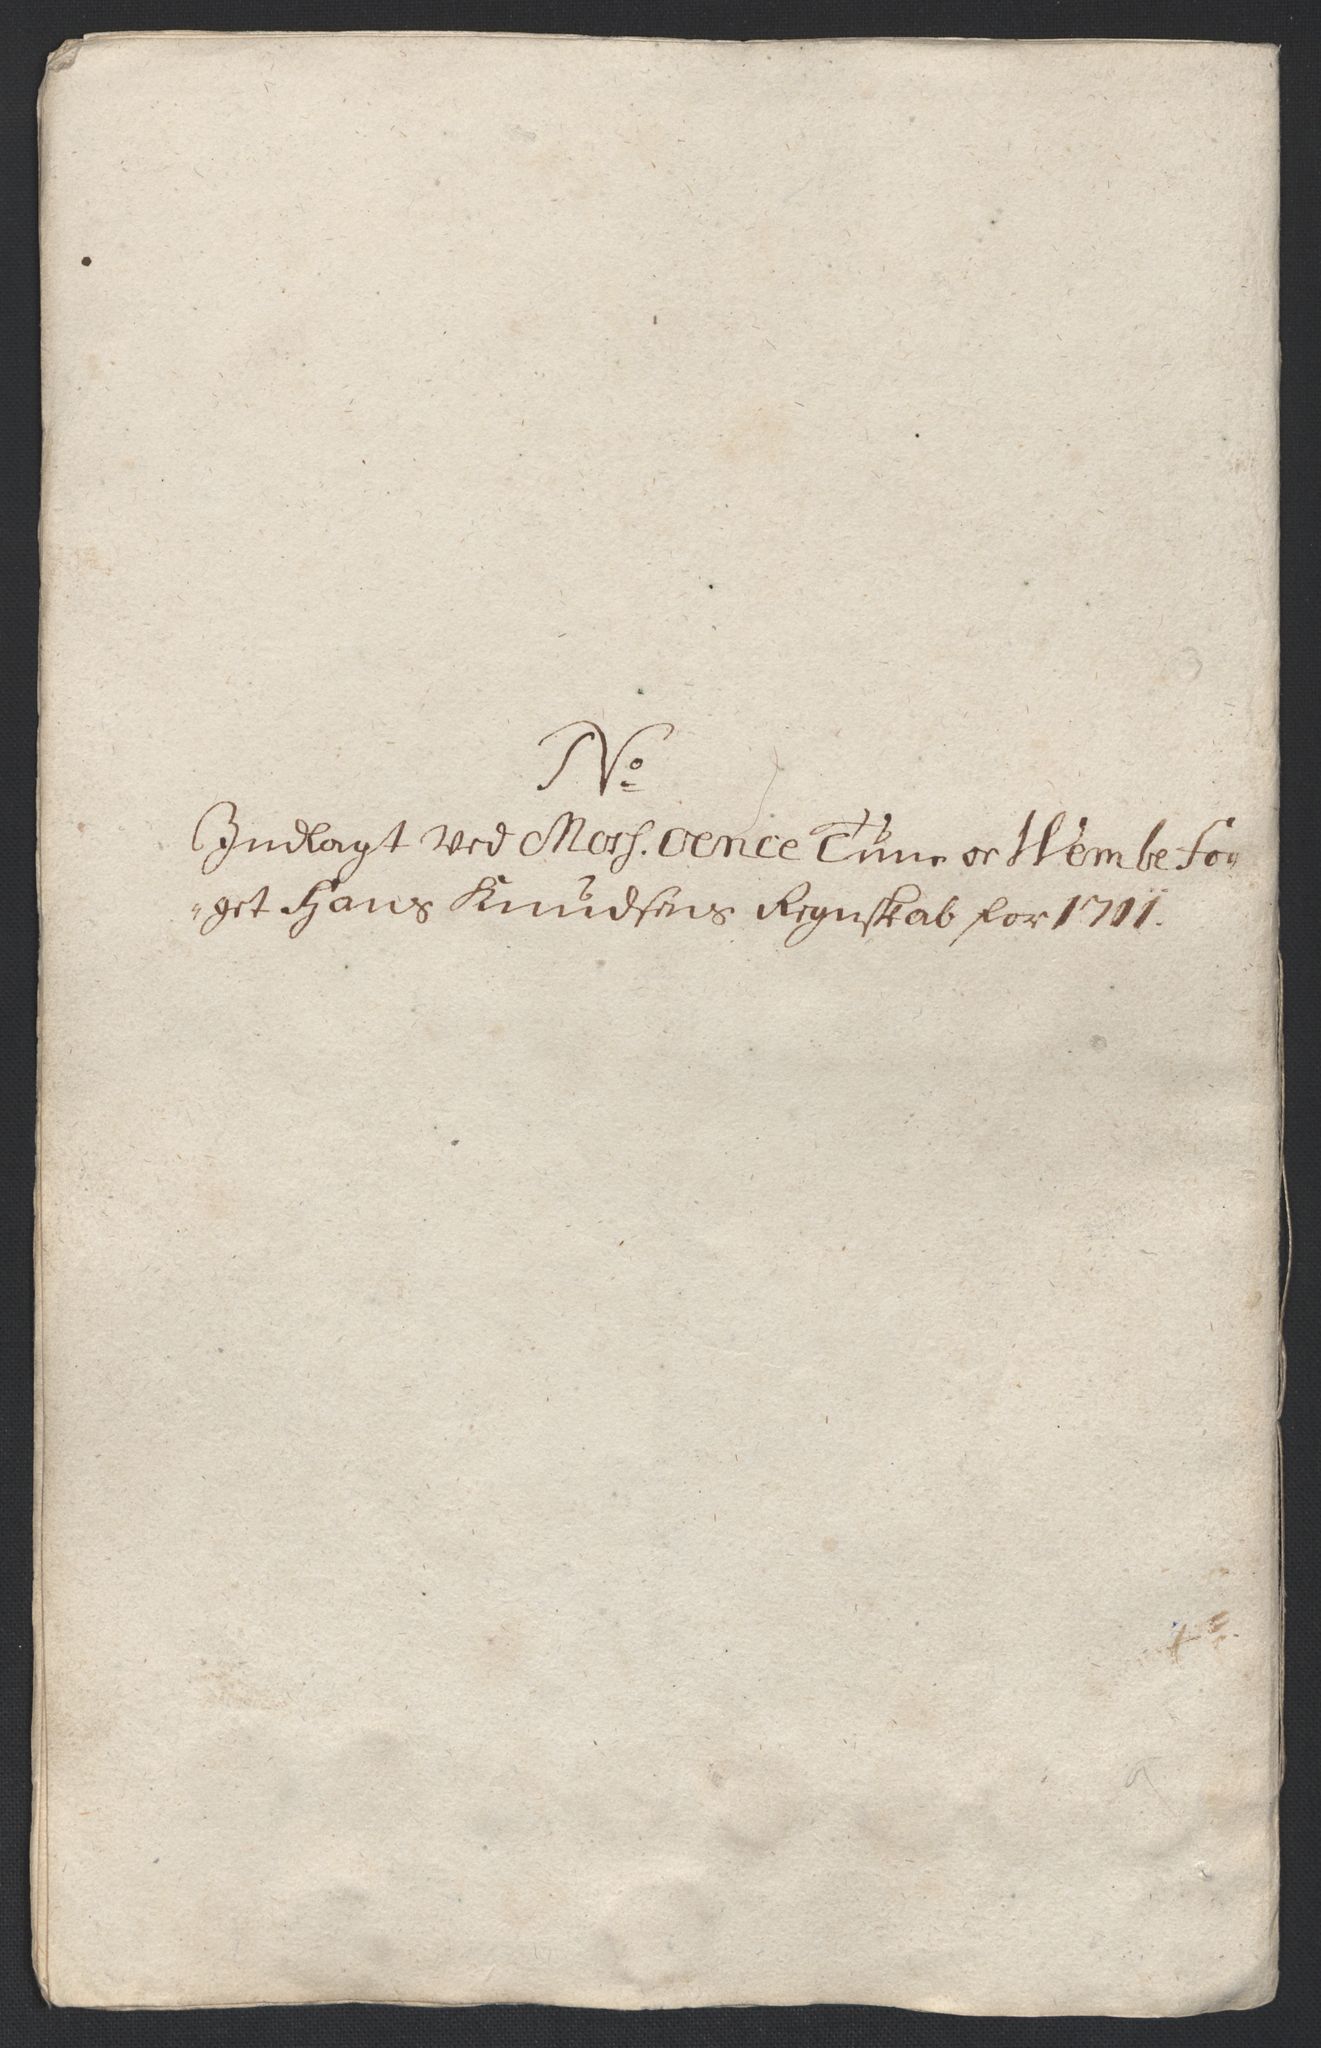 No
Indlagt ved Moss. oence Tune oc Wembe Fo-
-get Hans Knudsens Regnskab for 1711.